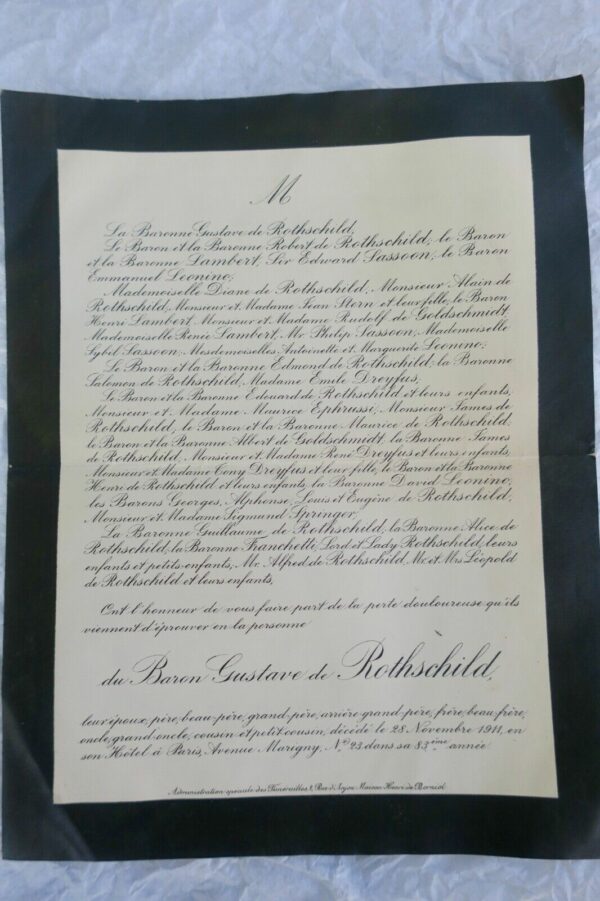 M
La Baronne Gustave de Rothschild,
Le Baron et la Baronne Robert de Rothschild, le Baron
et la Baronne Lambert, Sir Edward Sassoon, le Baron
Emmanuel Leonino;
Mademoiselle Diane de Rothschild, Monsieur Alain de
Rothschild, Monsieur et Madame Jean Stern et leur fille, le Baron
Henri Lambert, Monsieur et Madame Rudolf de Goldschmidt,
Mademoiselle Renée Lambert, Mr Philip Sassoon, Mademoiselle
Sybil Sassoon, Mesdemoiselles Antoinette et Marguerite Leonino;
Le Baron et la Baronne Edmond de Rothschild, la Baronne
Salomon de Rothschild, Madame Emile Dreyfus,
Le Baron et la Baronne Edouard de Rothschild et leurs enfants,
Monsieur et Madame Maurice Ephrussi, Monsieur James de
Rothschild, le Baron et la Baronne Maurice de Rothschild,
le Baron et la Baronne Albert de Goldschmidt, la Baronne James
de Rothschild, Monsieur et Madame René Dreyfus et leurs enfants,
Monsieur et Madame Tony Dreyfus et leur fille, le Baron et la Baronne
Henri de Rothschild et leurs enfants, la Baronne David Leonino,
les Barons Georges, Alphonse, Louis et Eugène de Rothschild,
Monsieur et Madame Sigmund Springer,
La Baronne Guillaume de Rothschild, la Baronne Alice de
Rothschild, la Baronne Franchetti, Lord et Lady Rothschild, leurs
enfants et petits-enfants, Mr. Alfred de Rothschild, Mr. et Mrs Léopold
de Rothschild et leurs enfants,
Ont l'honneur de vous faire part de la perte douloureuse qu'ils
viennent d'éprouver en la personne
du Baron Gustave de Rothschild,
leur époux, père, beau-père, grand-père, arrière-grand-père, frère, beau-frère,
oncle, grand-oncle, cousin et petit cousin, décédé le 28 Novembre 1911, en
son Hôtel à Paris, Avenue Marigny, No 23 dans sa 83ème année
Administration spéciale des Funérailles, 1, Rue d'Anjou Maison Henri de Borniol